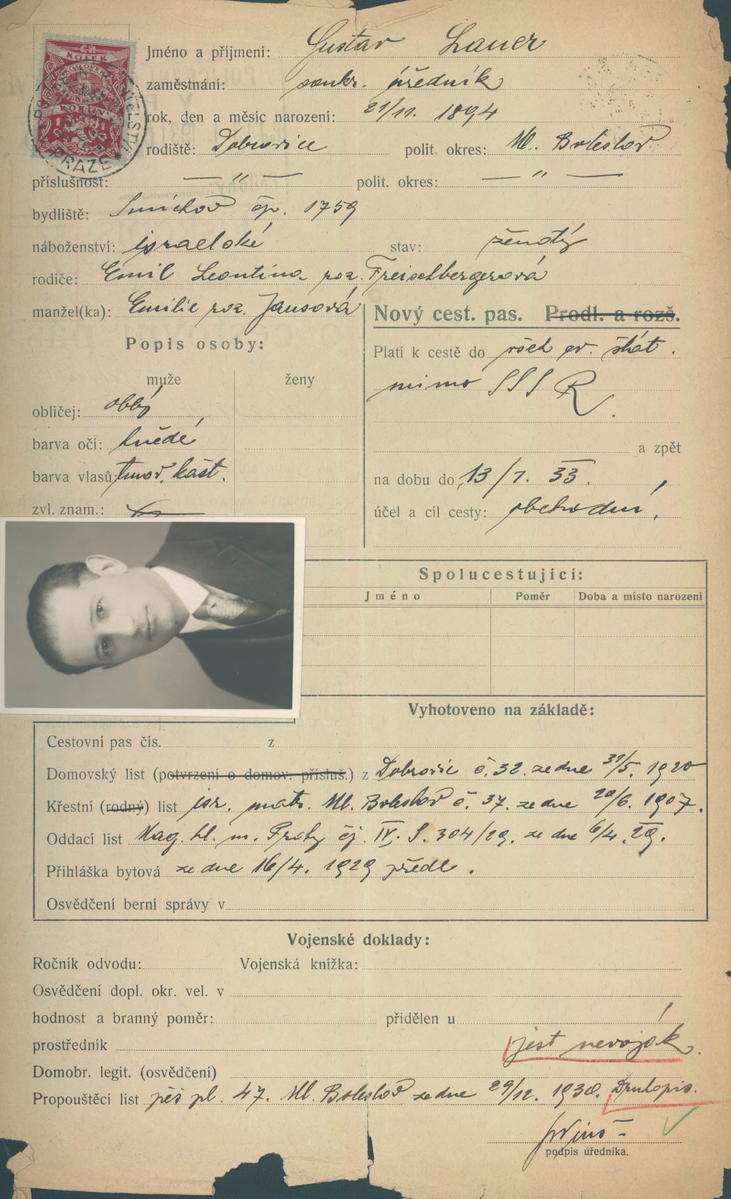 Jméno a přijmení: Gustav Lauer
zaměstnání: soukr. úředník
rok, den a měsíc narození: 21/11. 1894
rodiště: Dobrovice polit. okres: Ml. Boleslav
příslušnost: — " — polit. okres: — " —
bydliště: Smíchov čp. 1759
náboženství: israelské stav: ženatý
rodiče: Emil Leontina roz. Freischbergerová
manžel(ka): Emilie roz. Jansová
Nový cest. pas. Prodl. a rozš.
Popis osoby:
Platí k cestě do všech ev. stát.
mimo SSSR.
muže ženy
obličej: obly
barva očí: hnědé
a zpět
barva vlasů: tmav. kašt.
na dobu do 13/7. 33.
zvl. znam.:
účel a cíl cesty: obchodní,
Spolucestující:
Jméno Poměr Doba a místo narození
Vyhotoveno na základě:
Cestovní pas čís. z
Domovský list (potvrzení o domov. přísluš.) z Dobrovic č. 32. ze dne 31/5. 1920
Křestní (rodný) list isr. matr. Ml. Boleslav č. 37. ze dne 20/6. 1907.
Oddací list Mag. hl. m. Prahy čj. IV. S. 304/29. ze dne 6/4. 29.
Přihláška bytová ze dne 16/4. 1929 předl.
Osvědčení berní správy v
Vojenské doklady:
Ročník odvodu: Vojenská knížka:
Osvědčení dopl. okr. vel. v
hodnost a branný poměr: přidělen u
prostředník jest nevoják.
Domobr. legit. (osvědčení)
Propouštěcí list pěš. pl. 47. Ml. Boleslav ze dne 29/12. 1930. Druhopis.
podpis úředníka.